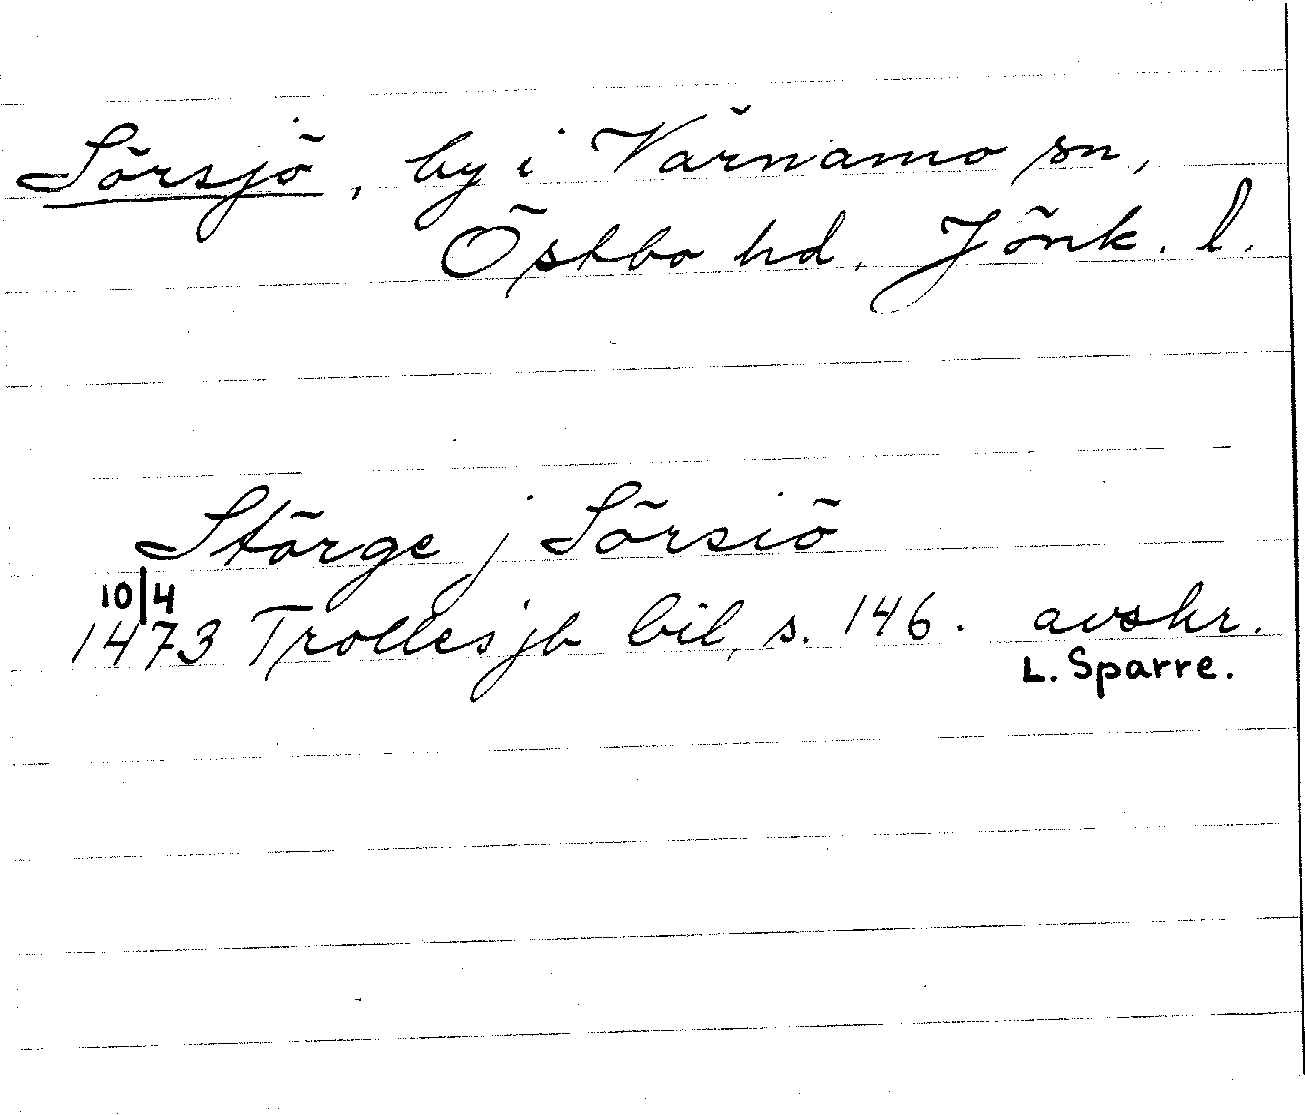 Sörsjö, by i Värnamo sn,
Östbo hd, Jönk. l.
Störge j Sörsiö
10/4
1473 Trolles jb bil, s. 146. avskr.
L. Sparre.